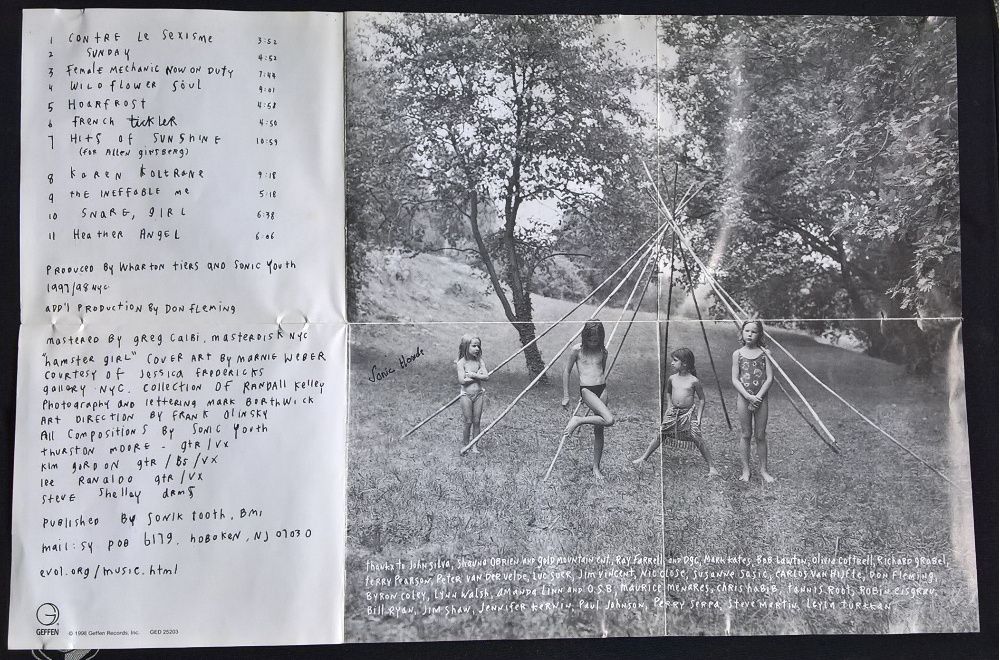 1 CONTRE LE SEXISME 3:52
2 SUNDAY 4:52
3 Female Mechanic NOW ON DUTY 7:44
4 WILDFLOWER SOUL 9:01
5 HOARFROST 4:58
6 FRENCH tickLER 4:50
7 HITS OF SUNSHINE 10:59
(FOR ALLEN GINSBERG)
8 KAREN KOLTRANE 9:18
9 the INEFFABLE Me 5:18
10 SNARE, GIRL 6:38
11 Heather ANGEL 6:06
PRODUCED BY WHARTON TIERS AND SONIC YOUTH
1997/98 NYC
ADD'L PRODUCTION BY DON FLEMING
mastered by greg Calbi, masterdisk NYC
"hamster girl" COVER ART BY MARNIE WEBER
COURTESY OF JESSICA FREDERICKS
gallery NYC. COLLECTION OF RANDALL Kelley
Photography and lettering MARK BORTHWICK
ART DIRECTION BY FRANK OLINSKY
All COMPOSITIONS BY SONIC YOUTH
THURSTON MOORE - GTR/VX
KIM GORDON GTR/BS/VX
lee RANALDO GTR/VX
STEVE Shelley DRMS
Published BY SONIK TOOTH, BMI
mail: SY POB 6179, HOBOKEN, NJ 07030
evol.org/music.html
GEFFEN © 1998 Geffen Records, Inc. GED 25203
thanks to John Silva, Shauna O'Brien and Gold Mountain Ent, Ray Farrell and DGC, Mark Kates, Bob Lawton, Olivia Cottrell, Richard Grabel,
Terry Pearson, Peter Van Der Velde, Luc Suer, Jim Vincent, Nic Close, Susanne Sasic, Carlos Van Hijfte, Don Fleming,
Byron Coley, Lynn Walsh, Amanda Linn and O.S.B, Maurice Menares, Chris Habib, Tannis Root, Robin
Bill Ryan, Jim Shaw, Jennifer Kernin, Paul Johnson, Perry Serpa, Steve Martin, Leyla Turkkan